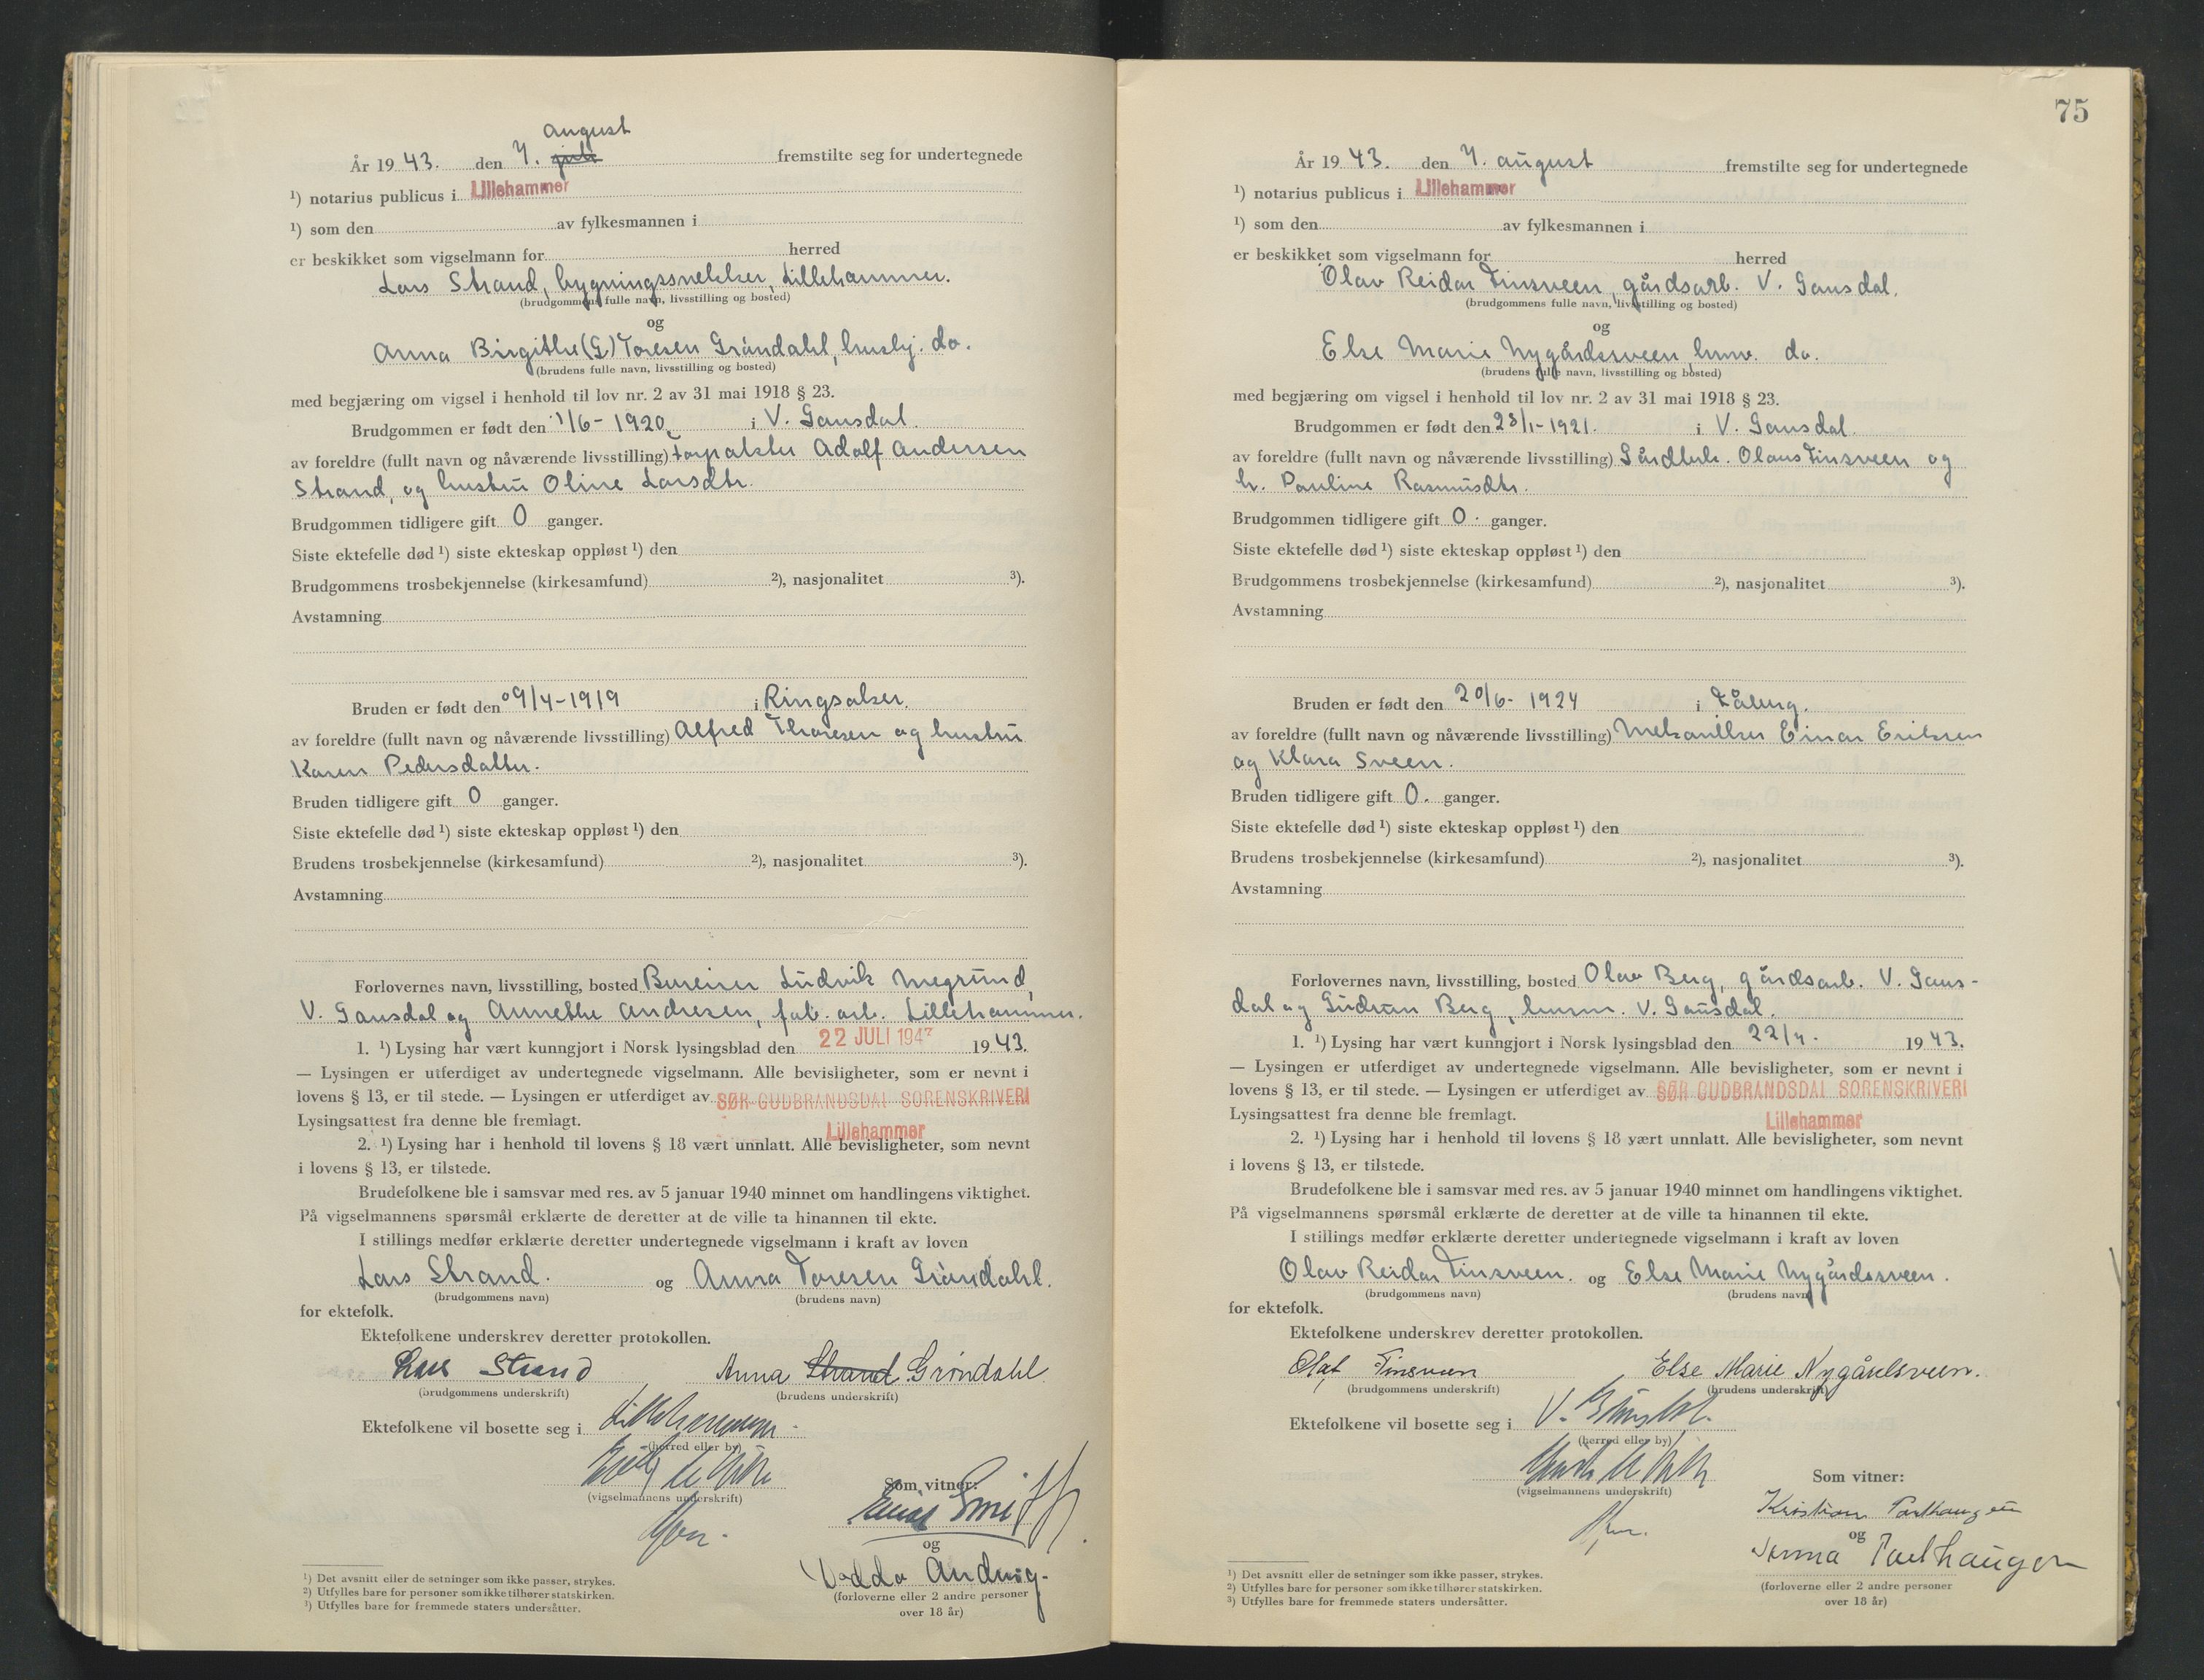 august
År 19 43. den 7. juli fremstilte seg for undertegnede
¹) notarius publicus i Lillehammer
¹) som den av fylkesmannen i
er beskikket som vigselmann for herred
Lars Strand, bygningssnekker, Lillehammer.
(brudgommens fulle navn, livsstilling og bosted)
og
Anna Birgithe (G) Toresen Gröndahl, husbj. do.
(brudens fulle navn, livsstilling og bosted)
med begjæring om vigsel i henhold til lov nr. 2 av 31 mai 1918 § 23.
Brudgommen er født den 1/6 - 1920 i V. Gausdal
av foreldre (fullt navn og nåværende livsstilling) Forpakter Adolf Andersen
Strand, og hustru Oline Larsdtr.
Brudgommen tidligere gift 0 ganger.
Siste ektefelle død ¹) siste ekteskap oppløst ¹) den
Brudgommens trosbekjennelse (kirkesamfund) ²), nasjonalitet ³).
Avstamning
Bruden er født den 9/4-1919 i Ringsaker.
av foreldre (fullt navn og nåværende livsstilling) Alfred Thoresen og hustru
Karen Pedersdatter.
Bruden tidligere gift 0 ganger.
Siste ektefelle død ¹) siste ekteskap oppløst ¹) den
Brudens trosbekjennelse (kirkesamfund) ²), nasjonalitet ³).
Avstamning
Forlovernes navn, livsstilling, bosted Bureiser Ludvik Megrund,
V. Gausdal og Annethe Andresen, fab. arb. Lillehammer.
1. ¹) Lysing har vært kunngjort i Norsk lysingsblad den 22 JULI 194 19 43.
— Lysingen er utferdiget av undertegnede vigselmann. Alle bevisligheter, som er nevnt i
lovens § 13, er til stede. — Lysingen er utferdiget av SØR-GUDBRANDSDAL SORENSKRIVERI
Lysingsattest fra denne ble fremlagt. Lillehammer
2. ¹) Lysing har i henhold til lovens § 18 vært unnlatt. Alle bevisligheter, som nevnt
i lovens § 13, er tilstede.
Brudefolkene ble i samsvar med res. av 5 januar 1940 minnet om handlingens viktighet.
På vigselmannens spørsmål erklærte de deretter at de ville ta hinannen til ekte.
I stillings medfør erklærte deretter undertegnede vigselmann i kraft av loven
Lars Strand. og Anna Toresen Gröndahl.
(brudgommens navn) (brudens navn)
for ektefolk.
Ektefolkene underskrev deretter protokollen.
Lars Strand Anna Strand Grøndahl
(brudgommens underskrift) (brudens underskrift)
Ektefolkene vil bosette seg i Lillehammer
(herred eller by)
Som vitner:
(vigselmannens underskrift)
og
(forloverne eller 2 andre personer
over 18 år)
¹) Det avsnitt eller de setninger som ikke passer, strykes.
²) Utfylles bare for personer som ikke tilhører statskirken.
³) Utfylles bare for fremmede staters undersåtter.
75
År 19 43. den 7. august fremstilte seg for undertegnede
¹) notarius publicus i Lillehammer
¹) som den av fylkesmannen i
er beskikket som vigselmann for herred
Olav Reidar Finsveen, gårdsarb. V. Gausdal.
(brudgommens fulle navn, livsstilling og bosted)
og
Else Marie Nygårdsveen, husm. do.
(brudens fulle navn, livsstilling og bosted)
med begjæring om vigsel i henhold til lov nr. 2 av 31 mai 1918 § 23.
Brudgommen er født den 23/1-1921. i V. Gausdal.
av foreldre (fullt navn og nåværende livsstilling) Gårdbr. Olaus Finsveen og
h. Pauline Rasmusdtr.
Brudgommen tidligere gift 0. ganger.
Siste ektefelle død ¹) siste ekteskap oppløst ¹) den
Brudgommens trosbekjennelse (kirkesamfund) ²), nasjonalitet ³).
Avstamning
Bruden er født den 20/6- 1924 i Fåberg.
av foreldre (fullt navn og nåværende livsstilling) Mekaniker Einar Eriksen
og Klara Sveen.
Bruden tidligere gift 0. ganger.
Siste ektefelle død ¹) siste ekteskap oppløst ¹) den
Brudens trosbekjennelse (kirkesamfund) ²), nasjonalitet ³).
Avstamning
Forlovernes navn, livsstilling, bosted Olav Berg, gårdsarb. V. Gaus-
dal og Gudrun Berg, husm. V. Gausdal.
1. ¹) Lysing har vært kunngjort i Norsk lysingsblad den 22/7. 19 43.
— Lysingen er utferdiget av undertegnede vigselmann. Alle bevisligheter, som er nevnt i
lovens § 13, er til stede. — Lysingen er utferdiget av SØR GUDBRANDSDAL SORENSKRIVERI
Lysingsattest fra denne ble fremlagt. Lillehammer
2. ¹) Lysing har i henhold til lovens § 18 vært unnlatt. Alle bevisligheter, som nevnt
i lovens § 13, er tilstede.
Brudefolkene ble i samsvar med res. av 5 januar 1940 minnet om handlingens viktighet.
På vigselmannens spørsmål erklærte de deretter at de ville ta hinannen til ekte.
I stillings medfør erklærte deretter undertegnede vigselmann i kraft av loven
Olav Reidar Finsveen. og Else Marie Nygårdssveen.
(brudgommens navn) (brudens navn)
for ektefolk.
Ektefolkene underskrev deretter protokollen.
Olaf Finsveen Else Marie Nygårdsveen.
(brudgommens underskrift) (brudens underskrift)
Ektefolkene vil bosette seg i V. Gausdal.
(herred eller by)
Som vitner:
(vigselmannens underskrift)
Kristian Paulhaugen
og
Paulhaugen
(forloverne eller 2 andre personer
over 18 år)
¹) Det avsnitt eller de setninger som ikke passer, strykes.
²) Utfylles bare for personer som ikke tilhører statskirken.
³) Utfylles bare for fremmede staters undersåtter.